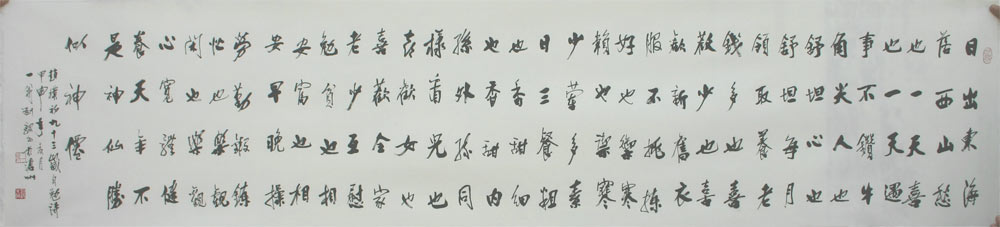 日出東海
落西山愁
也一天喜
也一天遇
事不鑽牛
角尖人也
舒坦心也
舒坦每月
領取養老
錢多也喜
歡少也喜
歡新舊衣
服不挑揀
好也禦寒
賴也禦寒
少葷多素
日三餐粗
也香甜細
也香甜内
孫外孫同
樣看兒也
喜歡女也
喜歡全家
老少互慰
勉貧也相
安富也相
安早晚操
勞勤鍛練
忙也樂觀
閑也樂觀
心寬體健
養天年不
是神仙勝
似神僊
趙樸初九十三歲自勉詩
甲申年月